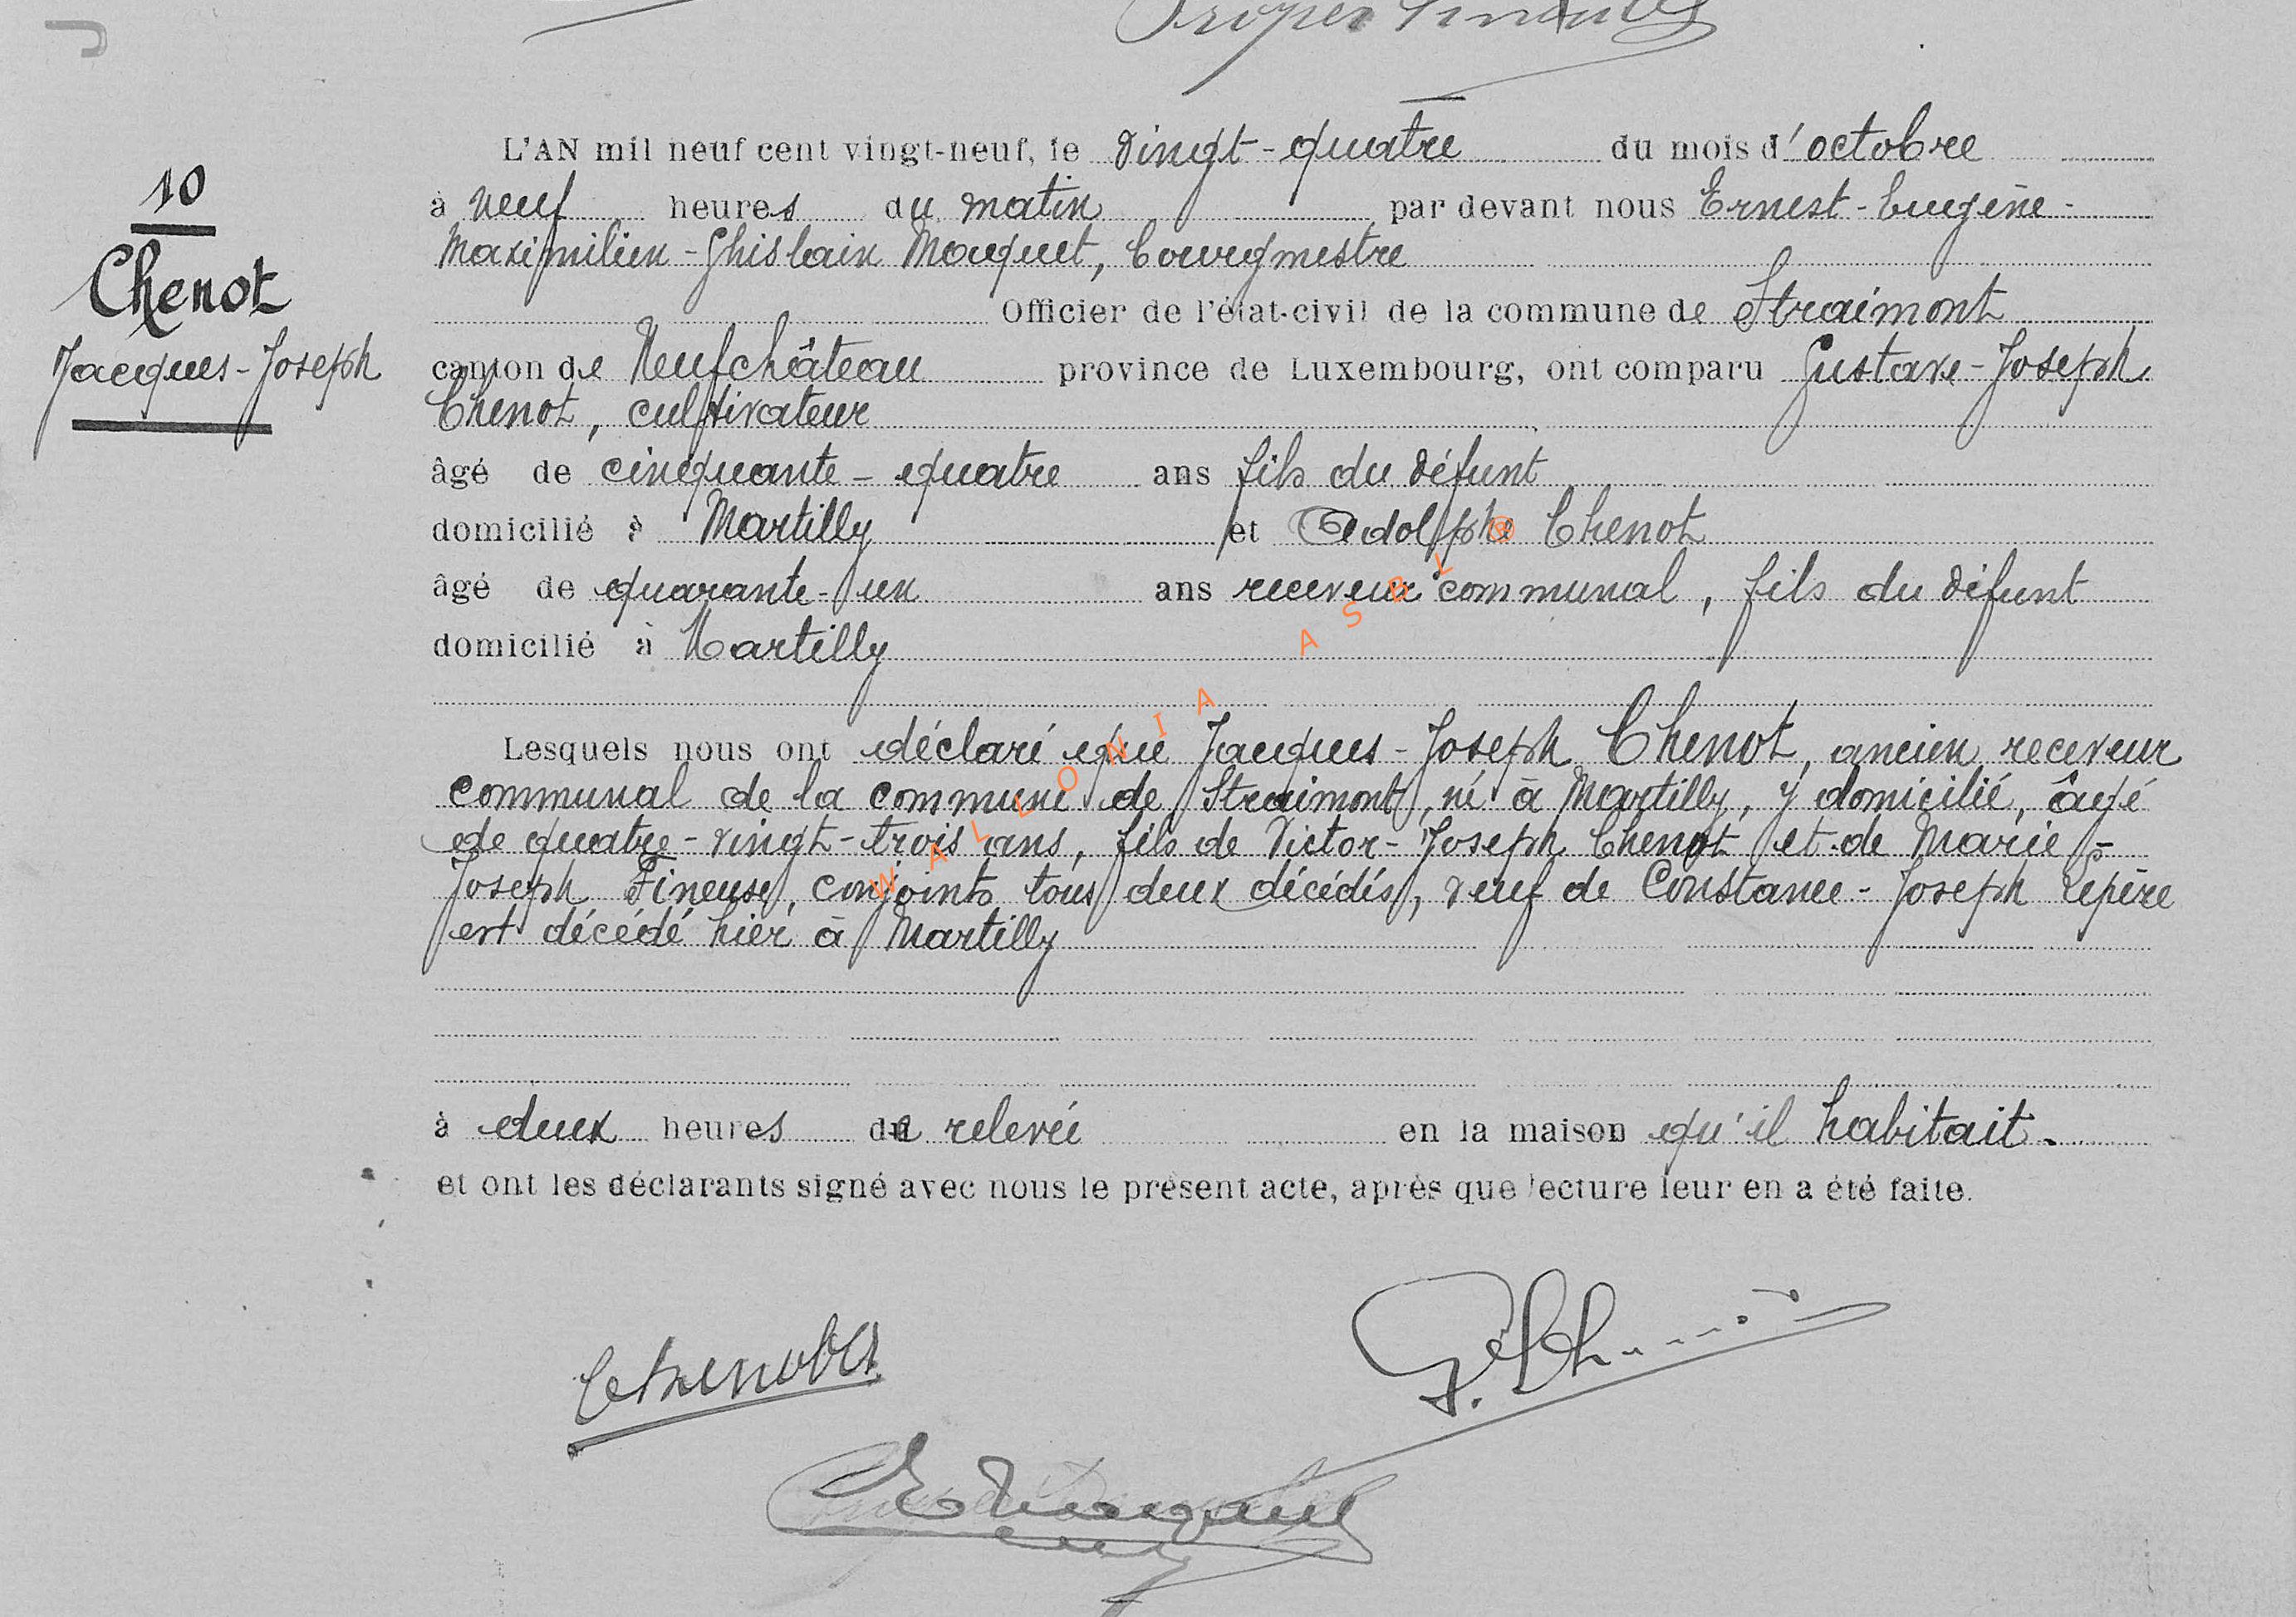 10
Chenot
Jacques-Joseph
L'AN mil neuf cent vingt-neuf, le vingt-quatre du mois d'octobre
à neuf heures du matin par devant nous Ernest-Eugène-
Maximilien-Ghislain Maquet, bourgmestre
Officier de l'état-civil de la commune de Straimont
canton de Neufchâteau province de Luxembourg, ont comparu Gustave-Joseph
Chenot, cultivateur
âgé de cinquante-quatre ans fils du défunt
domicilié à Martilly et Adolphe Chenot
âgé de quarante-un ans receveur communal, fils du défunt
domicilié à Martilly
Lesquels nous ont déclaré que Jacques-Joseph Chenot, ancien receveur
communal de la commune de Straimont, né à Martilly, y domicilié, âgé
de quatre-vingt-trois ans, fils de Victor-Joseph Chenot et de Marie-
Joseph Fineuse, conjoints tous deux décédés, veuf de Constance-Joseph Lepère
est décédé hier à Martilly
à deux heures de relevée en la maison qu'il habitait.
et ont les déclarants signé avec nous le présent acte, après que lecture leur en a été faite.
WALLONIA ASBL ®